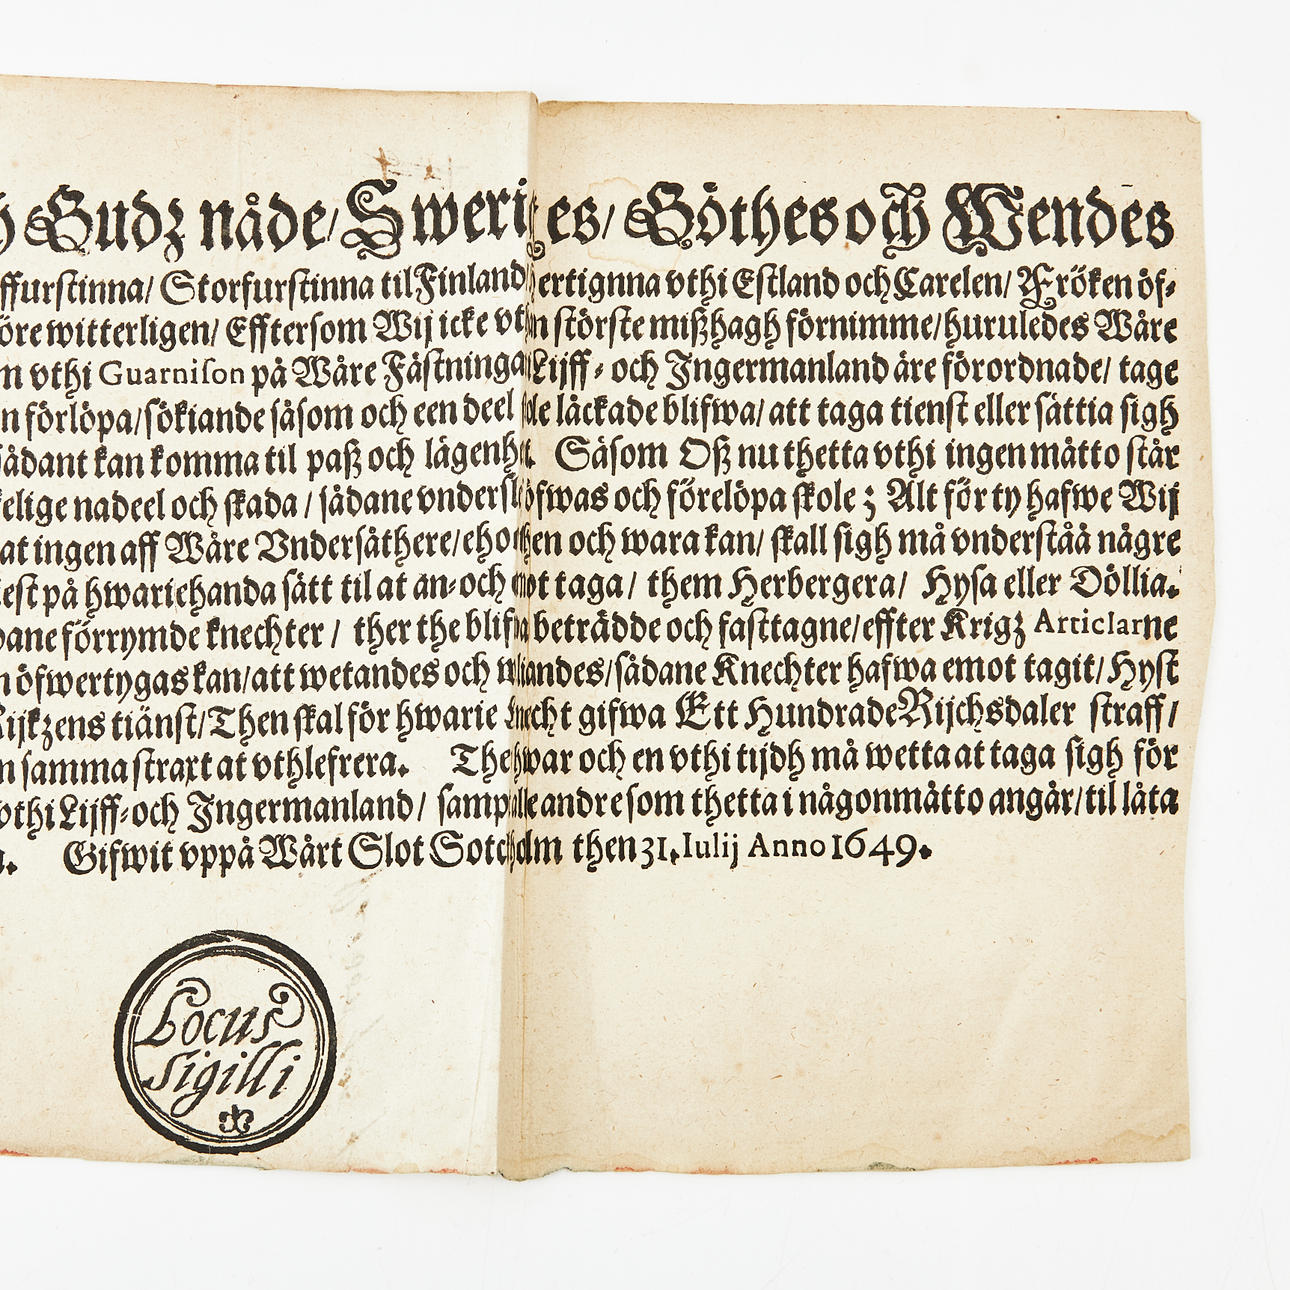 h Gudz nåde/ Sweriges/ Göthes och Wendes
ffurstinna/ Storfurstinna til Finland/ Hertignna vthi Estland och Carelen/ Fröken öf-
öre witterligen/ Efftersom Wij icke vthan störste mißhagh förnimme/ huruledes Wåre
n vthi Guarnison på Wåre Fästningar Lijff- och Ingermanland äre förordnade/ tage
n förlöpa/ sökiande såsom och een deel skole låckade blifwa/ att taga tienst eller sättia sigh
sådant kan komma til paß och lägenhet. Såsom Oß nu thetta vthi ingen måtto står
kelige nadeel och skada/ sådane vnderslöfwas och förelöpa skole; Alt för ty hafwe Wij
at ingen aff Wåre Vndersåthere/ ehothen och wara kan/ skall sigh må vnderståå någre
est på hwariehanda sätt til at an- och emot taga/ them Herbergera/ Hysa eller Döllia.
dane förrymde knechter/ ther the blifwa beträdde och fasttagne/ effter Krigz Articlarne
n öfwertygas kan/ att wetandes och wiliandes/ sådane Knechter hafwa emot tagit/ Hyst
Rijkzens tiänst/ Then skal för hwarie knecht gifwa Ett Hundrade Rijchsdaler straff/
n samma straxt at vthlefrera. The hwar och en vthi tijdh må wetta at taga sigh för
vthi Lijff- och Ingermanland/ samp alle andre som thetta i någon måtto angår/ til låta
. Gifwit vppå Wårt Slot Stockholm then 31. Iulij Anno 1649.
Locus
Sigilli